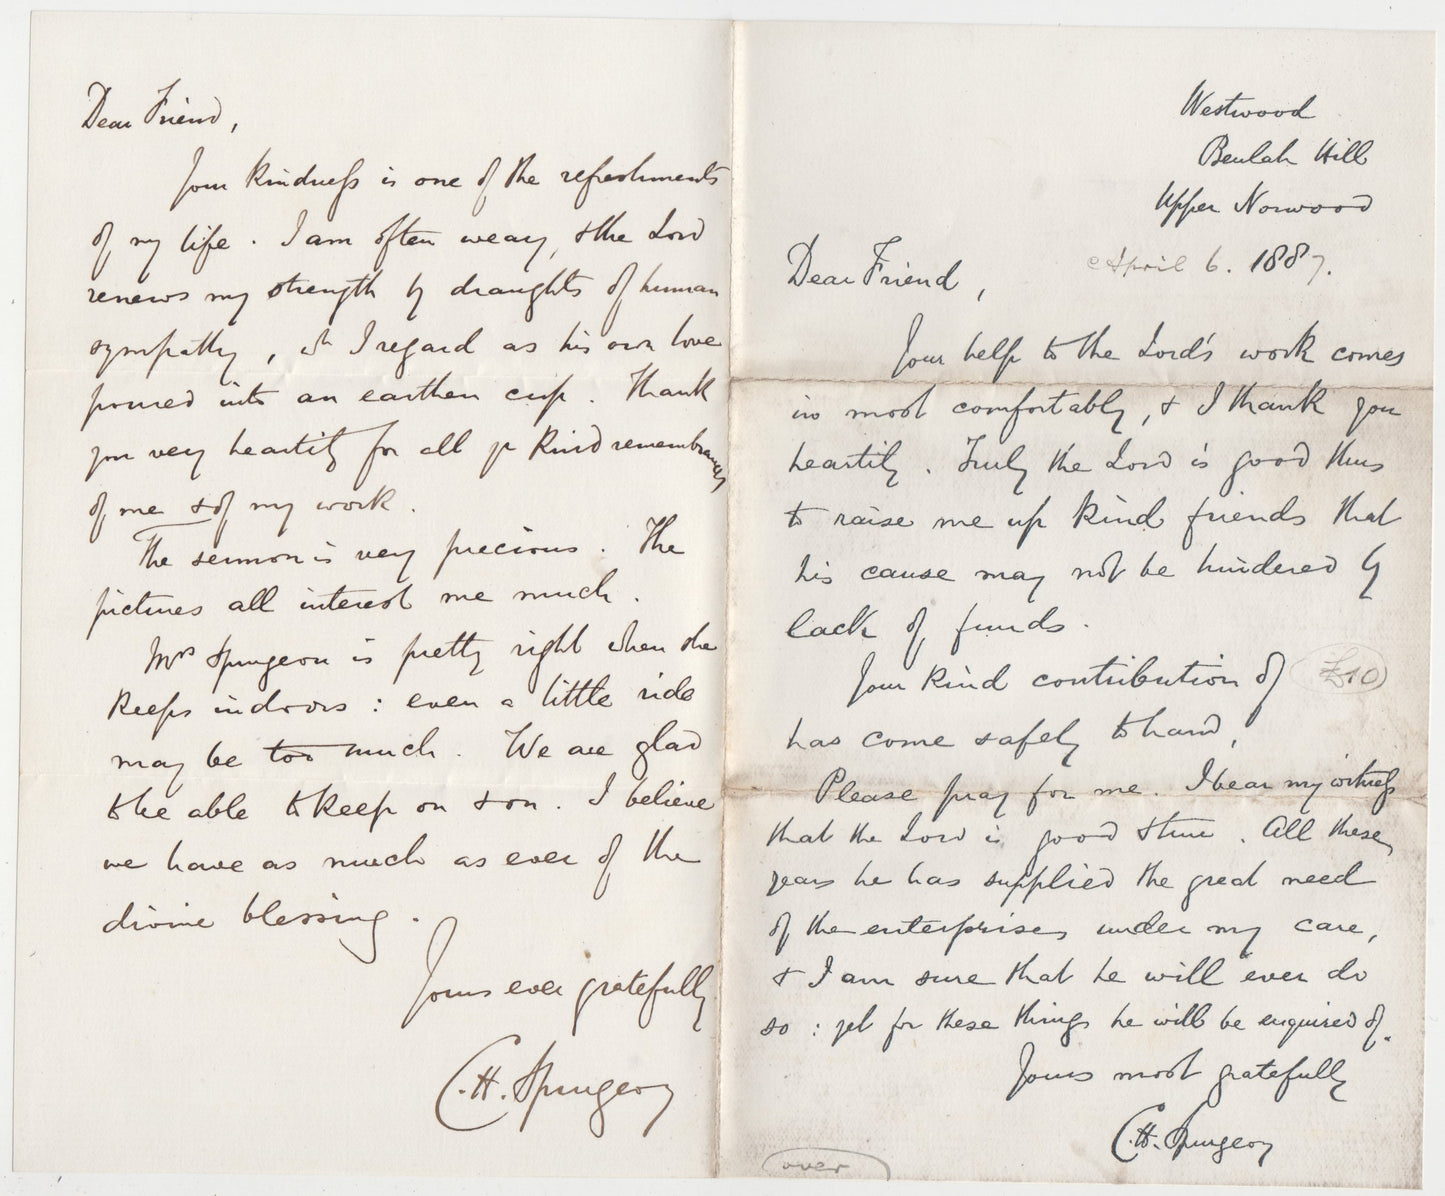 Dear Friend,
Your kindness is one of the refreshments
of my life. I am often weary, & the Lord
renews my strength by draughts of human
sympathy, wh I regard as his own love
poured into an earthen cup. Thank
you very heartily for all yr kind remembrances
of me & of my work.
The sermon is very precious. The
pictures all interest me much.
Mrs Spurgeon is pretty right when she
keeps indoors: even a little ride
may be too much. We are glad
to be able to keep on & on. I believe
we have as much as ever of the
divine blessing.
Yours ever gratefully
C. H. Spurgeon
Westwood
Beulah Hill
Upper Norwood
April 6. 1887.
Dear Friend,
Your help to the Lord's work comes
in most comfortably, & I thank you
heartily. Truly the Lord is good thus
to raise me up kind friends that
his cause may not be hindered by
lack of funds.
Your kind contribution of £10
has come safely to hand,
Please pray for me. I bear my witness
that the Lord is good & true. All these
years he has supplied the great need
of the enterprises under my care,
& I am sure that he will ever do
so: yet for these things he will be enquired of.
Yours most gratefully
C. H. Spurgeon
over